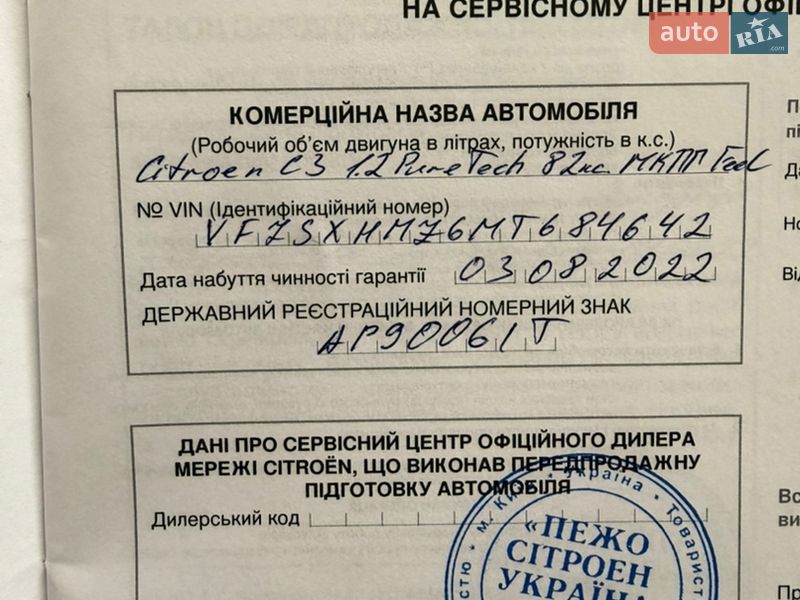 НА СЕРВІСНОМУ ЦЕНТРІ ОФІ
auto RIA .com
КОМЕРЦІЙНА НАЗВА АВТОМОБІЛЯ
(Робочий об'єм двигуна в літрах, потужність в к.с.)
Citroen C3 1.2 PureTech 82кс. МКПП Feel
№ VIN (Ідентифікаційний номер)
VF7SXHMZ6MT684642
Дата набуття чинності гарантії 03 08 2022
ДЕРЖАВНИЙ РЕЄСТРАЦІЙНИЙ НОМЕРНИЙ ЗНАК
AP9006IT
ДАНІ ПРО СЕРВІСНИЙ ЦЕНТР ОФІЦІЙНОГО ДИЛЕРА
МЕРЕЖІ CITROËN, ЩО ВИКОНАВ ПЕРЕДПРОДАЖНУ
ПІДГОТОВКУ АВТОМОБІЛЯ
Дилерський код
м. Київ * Україна * Товарист
«ПЕЖО
СІТРОЕН
УКРАЇНА